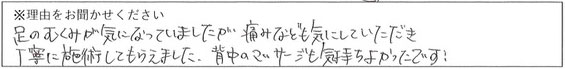 ※理由をお聞かせください
足のむくみが気になっていましたが 痛みなども気にしていただき
丁寧に施術してもらえました、背中のマッサージも気持ちよかったです!